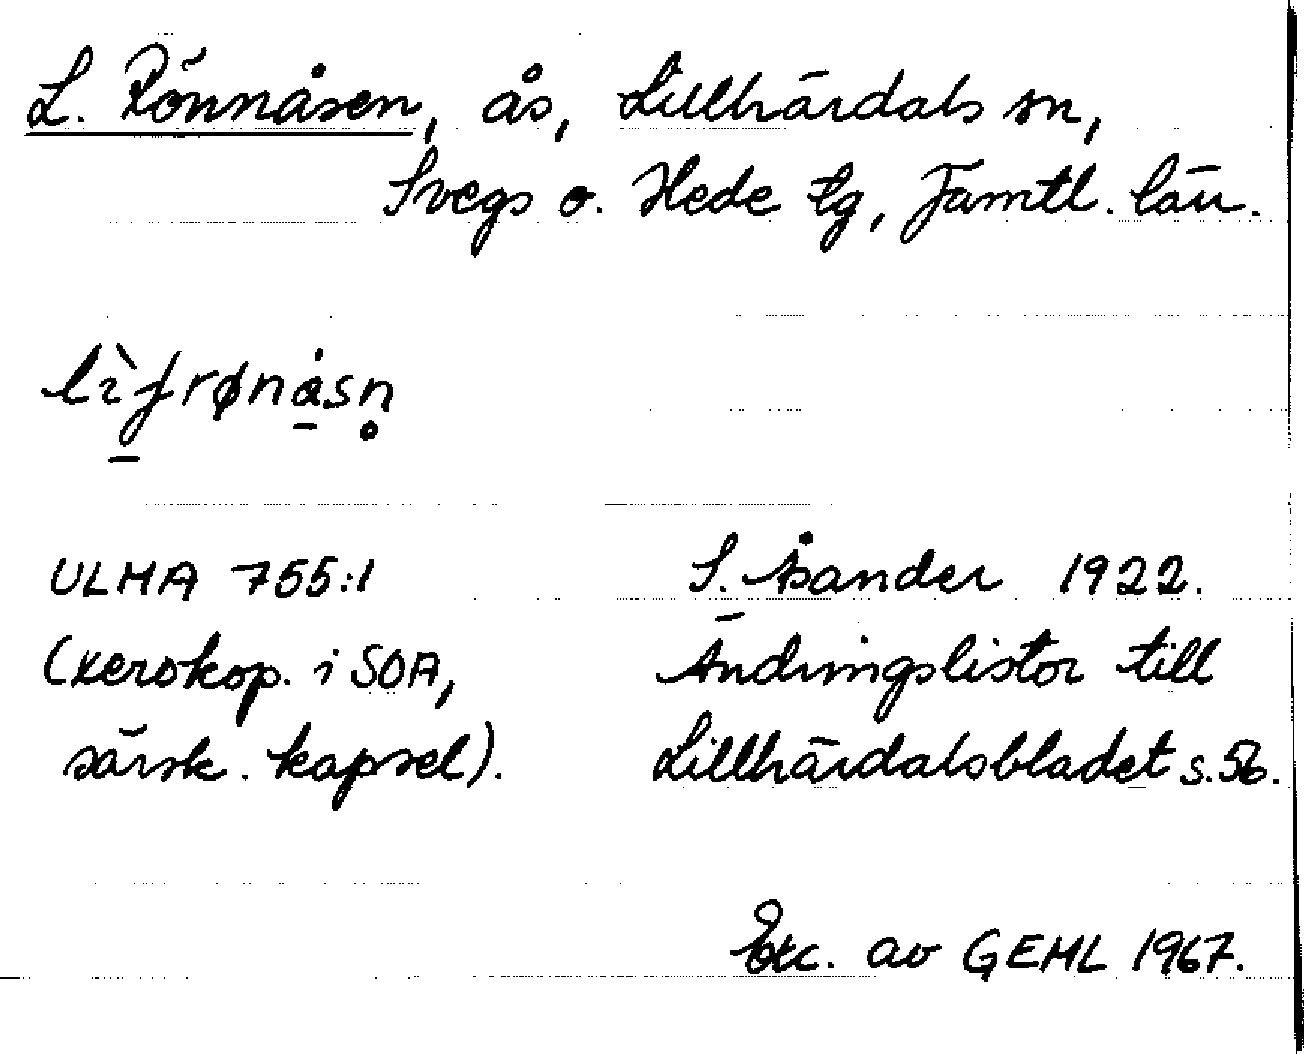 L. Rönnåsen, ås, Lillhärdals sn,
Svegs o. Hede tg, Jämtl. län.
lìfrønåsn̥
ULMA 755:1
S. Åsander 1922.
(xerokop. i SOA,
Ändringslistor till
särsk. kapsel).
Lillhärdalsbladet s. 5b.
Exc. av GEHL 1967.